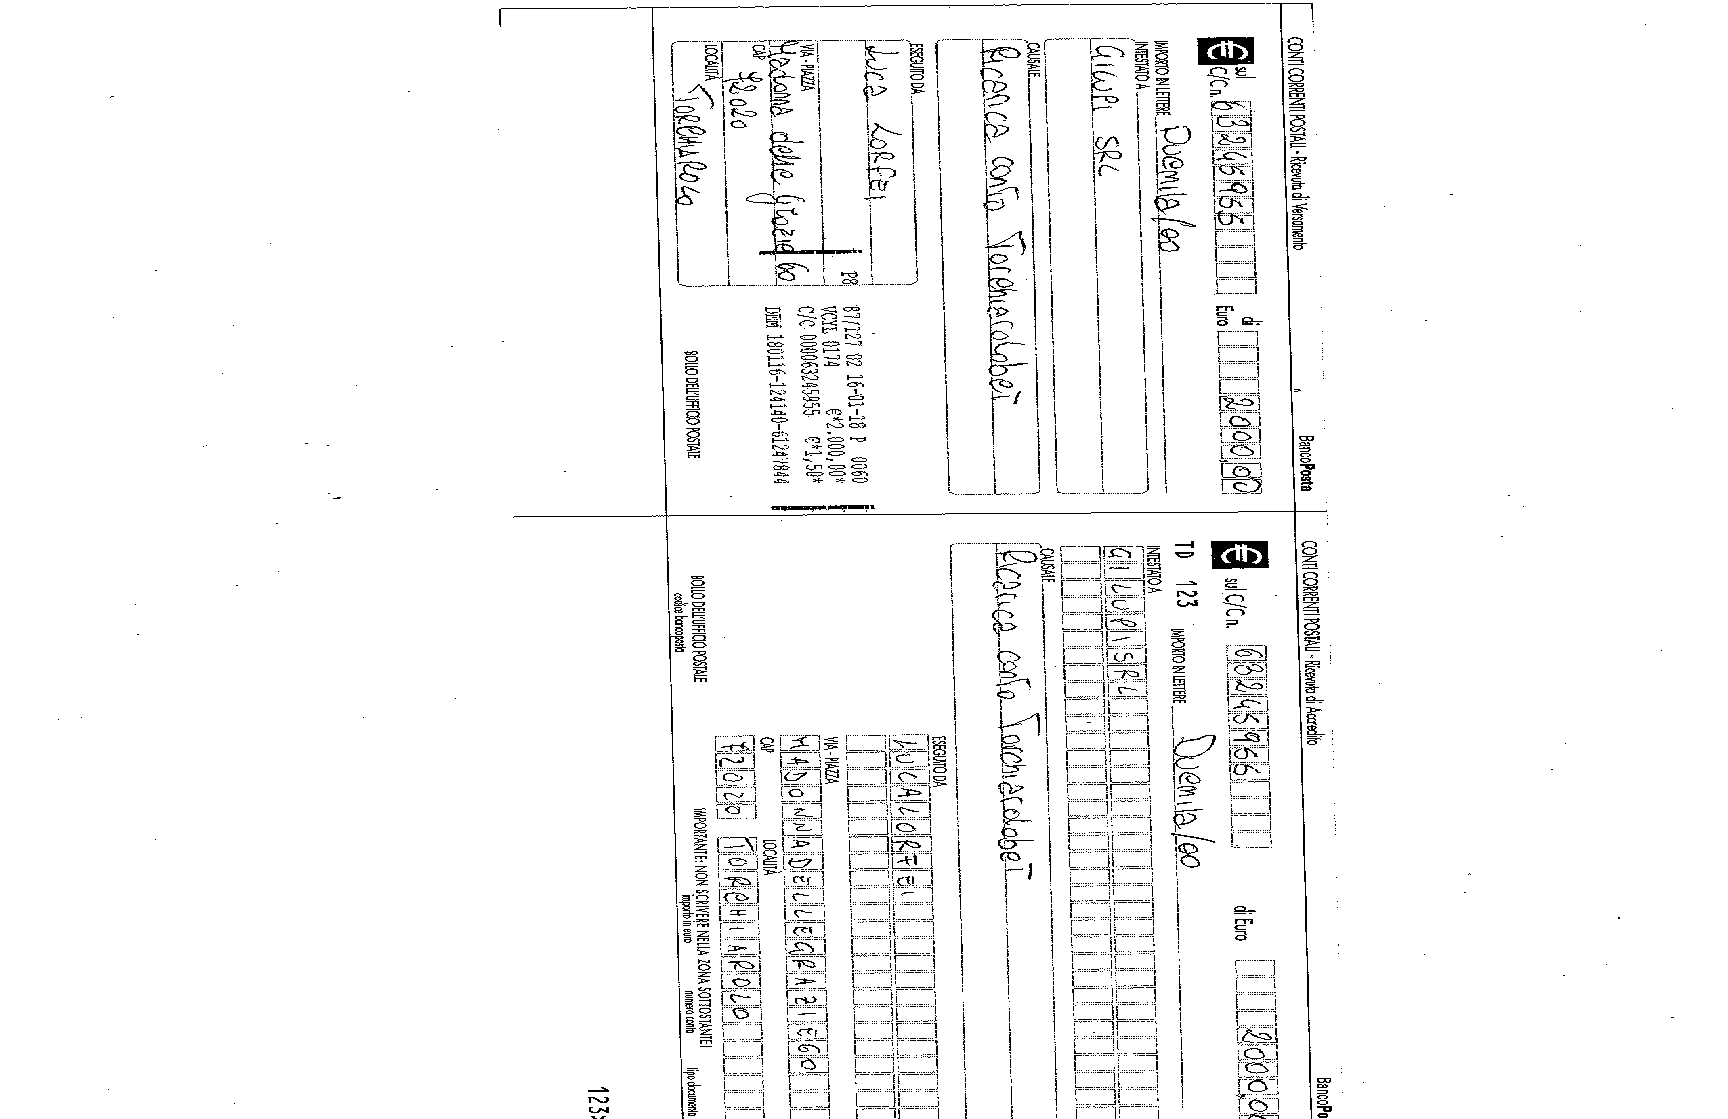 CONTI CORRENTI POSTALI - Ricevuta di Versamento
BancoPosta
€ sul C/C n. 63245955
di Euro 2000,00
IMPORTO IN LETTERE Duemila/00
INTESTATO A
GILUPI SRL
CAUSALE
Ricarica conto Torchiarolobet
ESEGUITO DA
LUCA LORFEI
VIA - PIAZZA
Madonna delle Grazie 60
CAP
72020
LOCALITÀ
TORCHIAROLO
P8
87/127 02 16-01-18 P 0060
VCYL 0174 €*2.000,00*
C/C 000063245955 €*1,50*
180116-124140-61247844
BOLLO DELL'UFFICIO POSTALE
CONTI CORRENTI POSTALI - Ricevuta di Accredito
BancoPo
€ sul C/C n. 63245955
di Euro 2000,0
TD 123 IMPORTO IN LETTERE Duemila/00
INTESTATO A
GILUPI SRL
CAUSALE
Ricarica conto Torchiarolobet
ESEGUITO DA
LUCA LORFEI
VIA - PIAZZA
MADONNA DELLE GRAZIE 60
CAP
72020
LOCALITÀ
TORCHIAROLO
BOLLO DELL'UFFICIO POSTALE
codice bancoposta
IMPORTANTE: NON SCRIVERE NELLA ZONA SOTTOSTANTE!
importo in euro
numero conto
tipo documento
123>